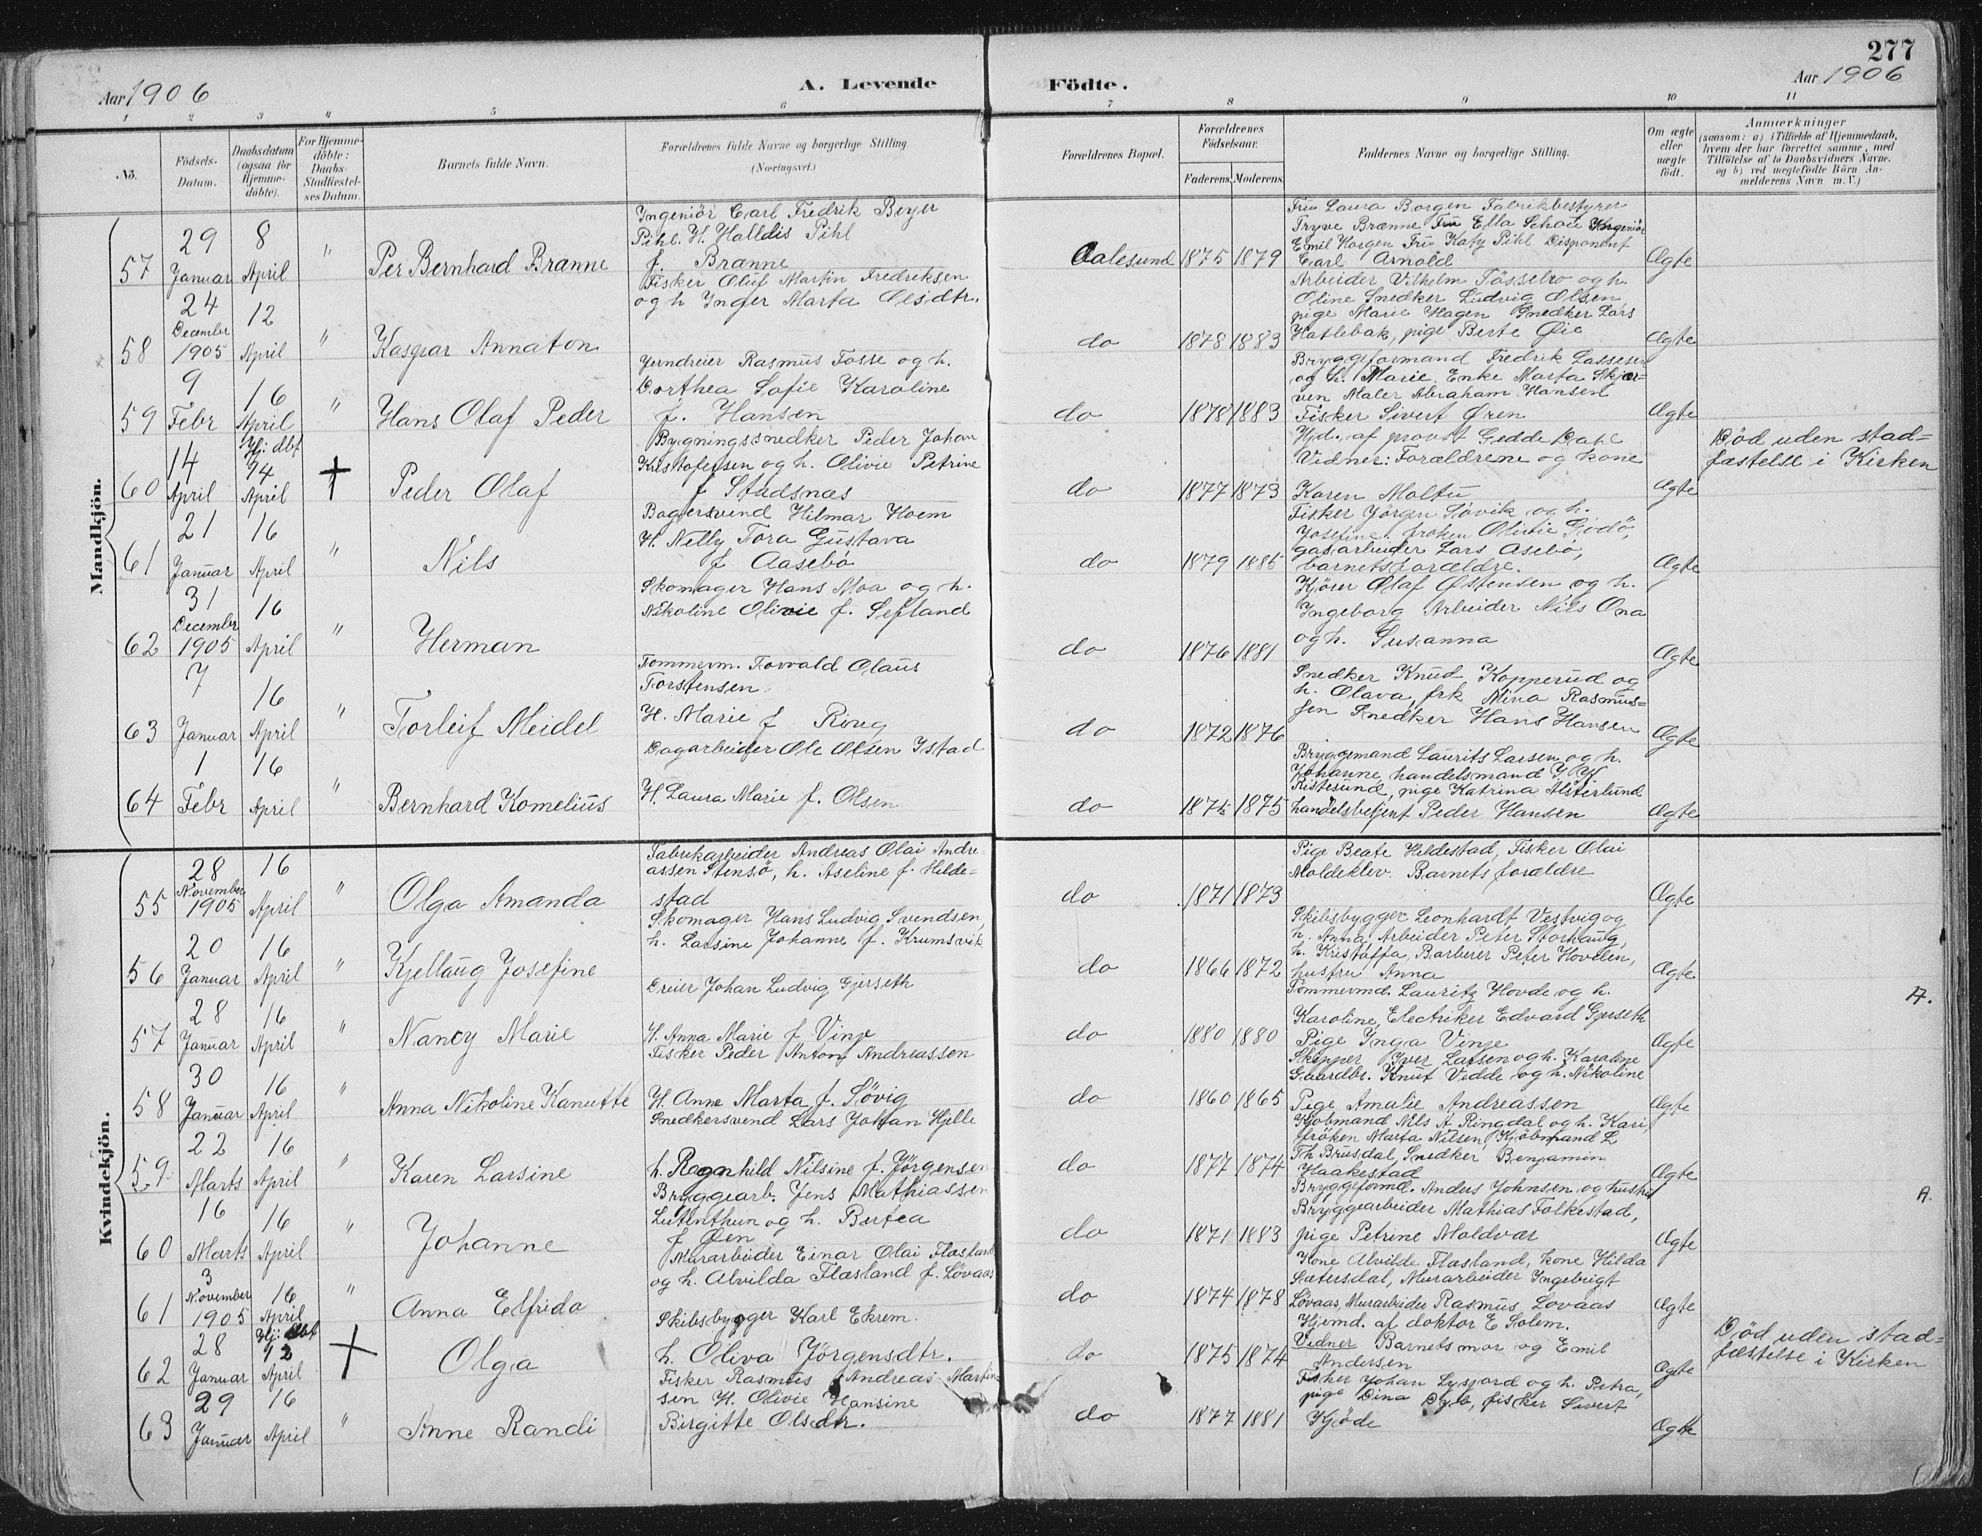 277
Aar 1906
A. Levende
Födte.
Aar 1906
1 2 3 4 5 6 7 8 9 10 11
No.
Födsels-Datum.
Daabsdatum (ogsaa for Hjemme-döbte).
For Hjemme-döbte: Daabs-Stadfæstel-ses Datum.
Barnets fulde Navn.
Forældrenes fulde Navne og borgerlige Stilling.
(Næringsvei.)
Forældrenes Bopæl.
Forældrenes Födselsaar.
Faderens. Moderens.
Faddernes Navne og borgerlige Stilling.
Om ægte eller uægte födt.
Anmærkninger
(saasom: a) i Tilfælde af Hjemmedaab, hvem der har forrettet samme, med Tilföielse af to Daabsvidners Navne, og b) ved uægtefödte Börn An-melderens Navn m. V.)
Mandkjön.
57 29 Januar 8 April " Per Bernhard Brænne
Ingeniör Carl Fredrik Beyer
Pihl. H. Halldis Pihl
f. Brænne
Aalesund 1875 1879
Fru Laura Borgen Fabrikbestyrer
Tryve Brænne Fru Ella Schou Ingeniör
Emil Horgen Fru Katy Pihl Disponent
Carl Arnold
Ægte
58 24 December 1905 12 April " Kaspar Annaton
Fisker Oluf Martin Fredriksen
og h Inger Marta Olsdtr.
do 1878 1883
Arbeider Vilhelm Fösselro og h.
Oline Snedker Ludvig Olsen
pige Marie Hagen Snedker Lars
Hatlebak, pige Berte Øie
Ægte
59 9 Febr 16 April " Hans Olaf Peder
Jerndreier Rasmus Fosse og h.
Dorthea Sofie Karoline
f. Hansen
do 1878 1883
Bryggeformand Fredrik Lassesen
og h. Marie. Enke Marta Skjær-
ven Maler Abraham Hansen
Fisker Sivert Øren
Ægte
60 14 April Hj: dbt 14 April + Peder Olaf
Bygningssnedker Peder Johan
Kristofersen og h. Olivie Petrine
f Stadsnæs
do 1877 1879
Hjd. af provst Gedde Dahl
Vidner: Forældrene og kone
Karen Moltu
Ægte
Död uden stad-
fæstelse i Kirken
61 21 Januar 16 April " Nils
Bagersvend Hilmar Hoem
H. Nelly Tora Gustava
f Aasebö
do 1879 1885
Fisker Jörgen Søvik og h.
Josefine, fröken Olivie Godö,
gasarbeider Lars Asebö,
barnets forældre.
Ægte
62 31 December 1905 16 April " Herman
Skomager Hans Moa og h.
Nikoline Olivie f. Sefland
do 1876 1881
Kjörer Olaf Østensen og h.
Ingeborg Arbeider Nils Ona
og h. Susanna
Ægte
63 7 Januar 16 April " Torleif Meidel
Tommerm. Torvald Olaus
Torstensen.
H. Marie f Röug
do 1872 1876
Snedker Knud Kopperud og
h. Olava, frk Nina Rasmus-
sen Snedker Hans Hansen
Ægte
64 1 Febr 16 April " Bernhard Kornelius
Dagarbeider Ole Olsen Ystad
H. Laura Marie f. Olsen
do 1875 1875
Bryggemand Laurits Larsen og h.
Johanne, handelsmand
Ristesund, pige Katrina Alsterlund
handelsbetjent Peder Hansen
Ægte
Kvindekjön.
55 28 November 1905 16 April " Olga Amanda
Fabrikarbeider Andreas Olai Andre-
assen Stensö, h. Aseline f. Hilde-
stad
do 1871 1873
Pige Beate Hildestad, Fisker Olai
Moldeklev. Barnets forældre
Ægte
56 20 Januar 16 April " Kjellaug Josefine
Skomager Hans Ludvig Svendsen,
h. Larsine Johanne f. Krumsvik
do 1866 1872
Skibsbygger Leonhardt Vestvig og
h. Anna, Arbeider Peter Storhaug,
h. Kristaffa, Barberer Peter Hovelen,
hustru Anna
Ægte
57 28 Januar 16 April " Nancy Marie
Dreier Johan Ludvig Gjerseth
H. Anna Marie f. Vinje
do 1880 1880
Tömmermd. Lauritz Hovde og h.
Karoline, Electriker Edvard Gjerseth
Pige Inga Vinje
Ægte
A.
58 30 Januar 16 April " Anna Nikoline Kanutte
Fisker Peder Anton Andreassen
H. Anne Marta f. Søvig
do 1860 1865
Skipper Iver Larsen og h. Karoline
Gaardbr. Knut Vedde og h. Nikoline
Pige Amalie Andreassen
Ægte
59 22 Marts 16 April " Karen Larsine
Snedkersvend Lars Johan Hjelle
h. Ragnhild Nilsine f. Jörgensen
do 1877 1874
Kjöbmand Nils A Ringdal og h. Kari,
fröken Marta Nilsen Kjöbmand L
Th Brusdal, Snedker Benjamin
Haakestad
Ægte
60 16 Marts 16 April " Johanne
Bryggearb. Jens Mathiassen
Lutenthun og h. Bertea
f Øen
do 1871 1883
Bryggeformd. Anders Johnsen og hustru
Bryggearbeider Mathias Folkestad,
pige Petrine Moldvær
Ægte
A.
61 3 November 1905 16 April " Anna Elfrida
Murarbeider Einar Olai Flæsland
og h. Alvilda Flæsland f. Løvaas
do 1874 1878
Kone Alvilde Flæsland, kone Hilda
Sætersdal, Murarbeider Ingebrigt
Løvaas, Murarbeider Rasmus Lovaas
Ægte
62 28 Januar Hj: dbt 12 April + Olga
Skibsbygger Karl Ekrem.
h. Oliva Jörgensdtr.
do 1875 1874
Hjemd. af doktor E Solem.
Vidner Barnets mor og Emil
Andersen
Ægte
Död uden stad-
fæstelse i Kirken
63 29 Januar 16 April " Anne Randi
Fisker Rasmus Andreas Martin
sen H. Olivie Hansine
Birgitte Olsdtr.
do 1877 1881
Fisker Johan Lysfjord og h. Petra,
pige Dina Dyb, fisker Sivert
Kjöde
Ægte